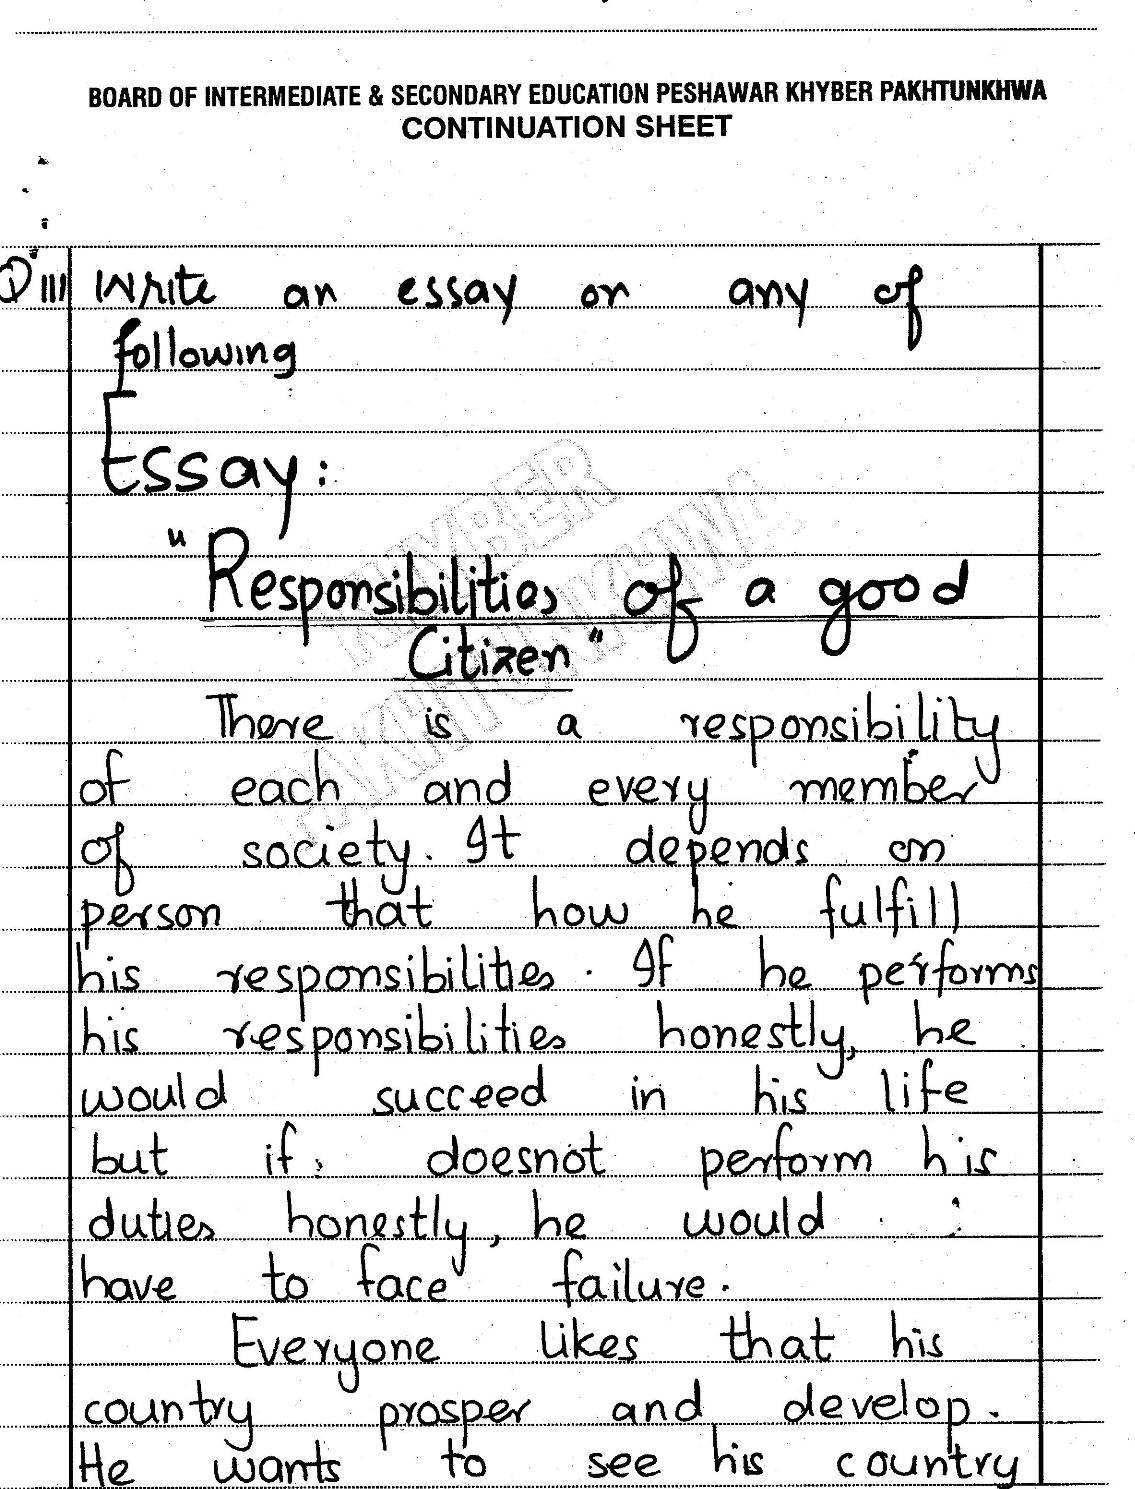 BOARD OF INTERMEDIATE & SECONDARY EDUCATION PESHAWAR KHYBER PAKHTUNKHWA
CONTINUATION SHEET
Q III Write an essay on any of
following
Essay:
"Responsibilities of a good
Citizen"
There is a responsibility
of each and every member
of society. It depends on
person that how he fulfill
his responsibilities. If he performs
his responsibilities honestly, he
would succeed in his life
but if, doesnot perform his
duties honestly, he would
have to face failure.
Everyone likes that his
country prosper and develop.
He wants to see his country
KHYBER
PAKHTUNKHWA